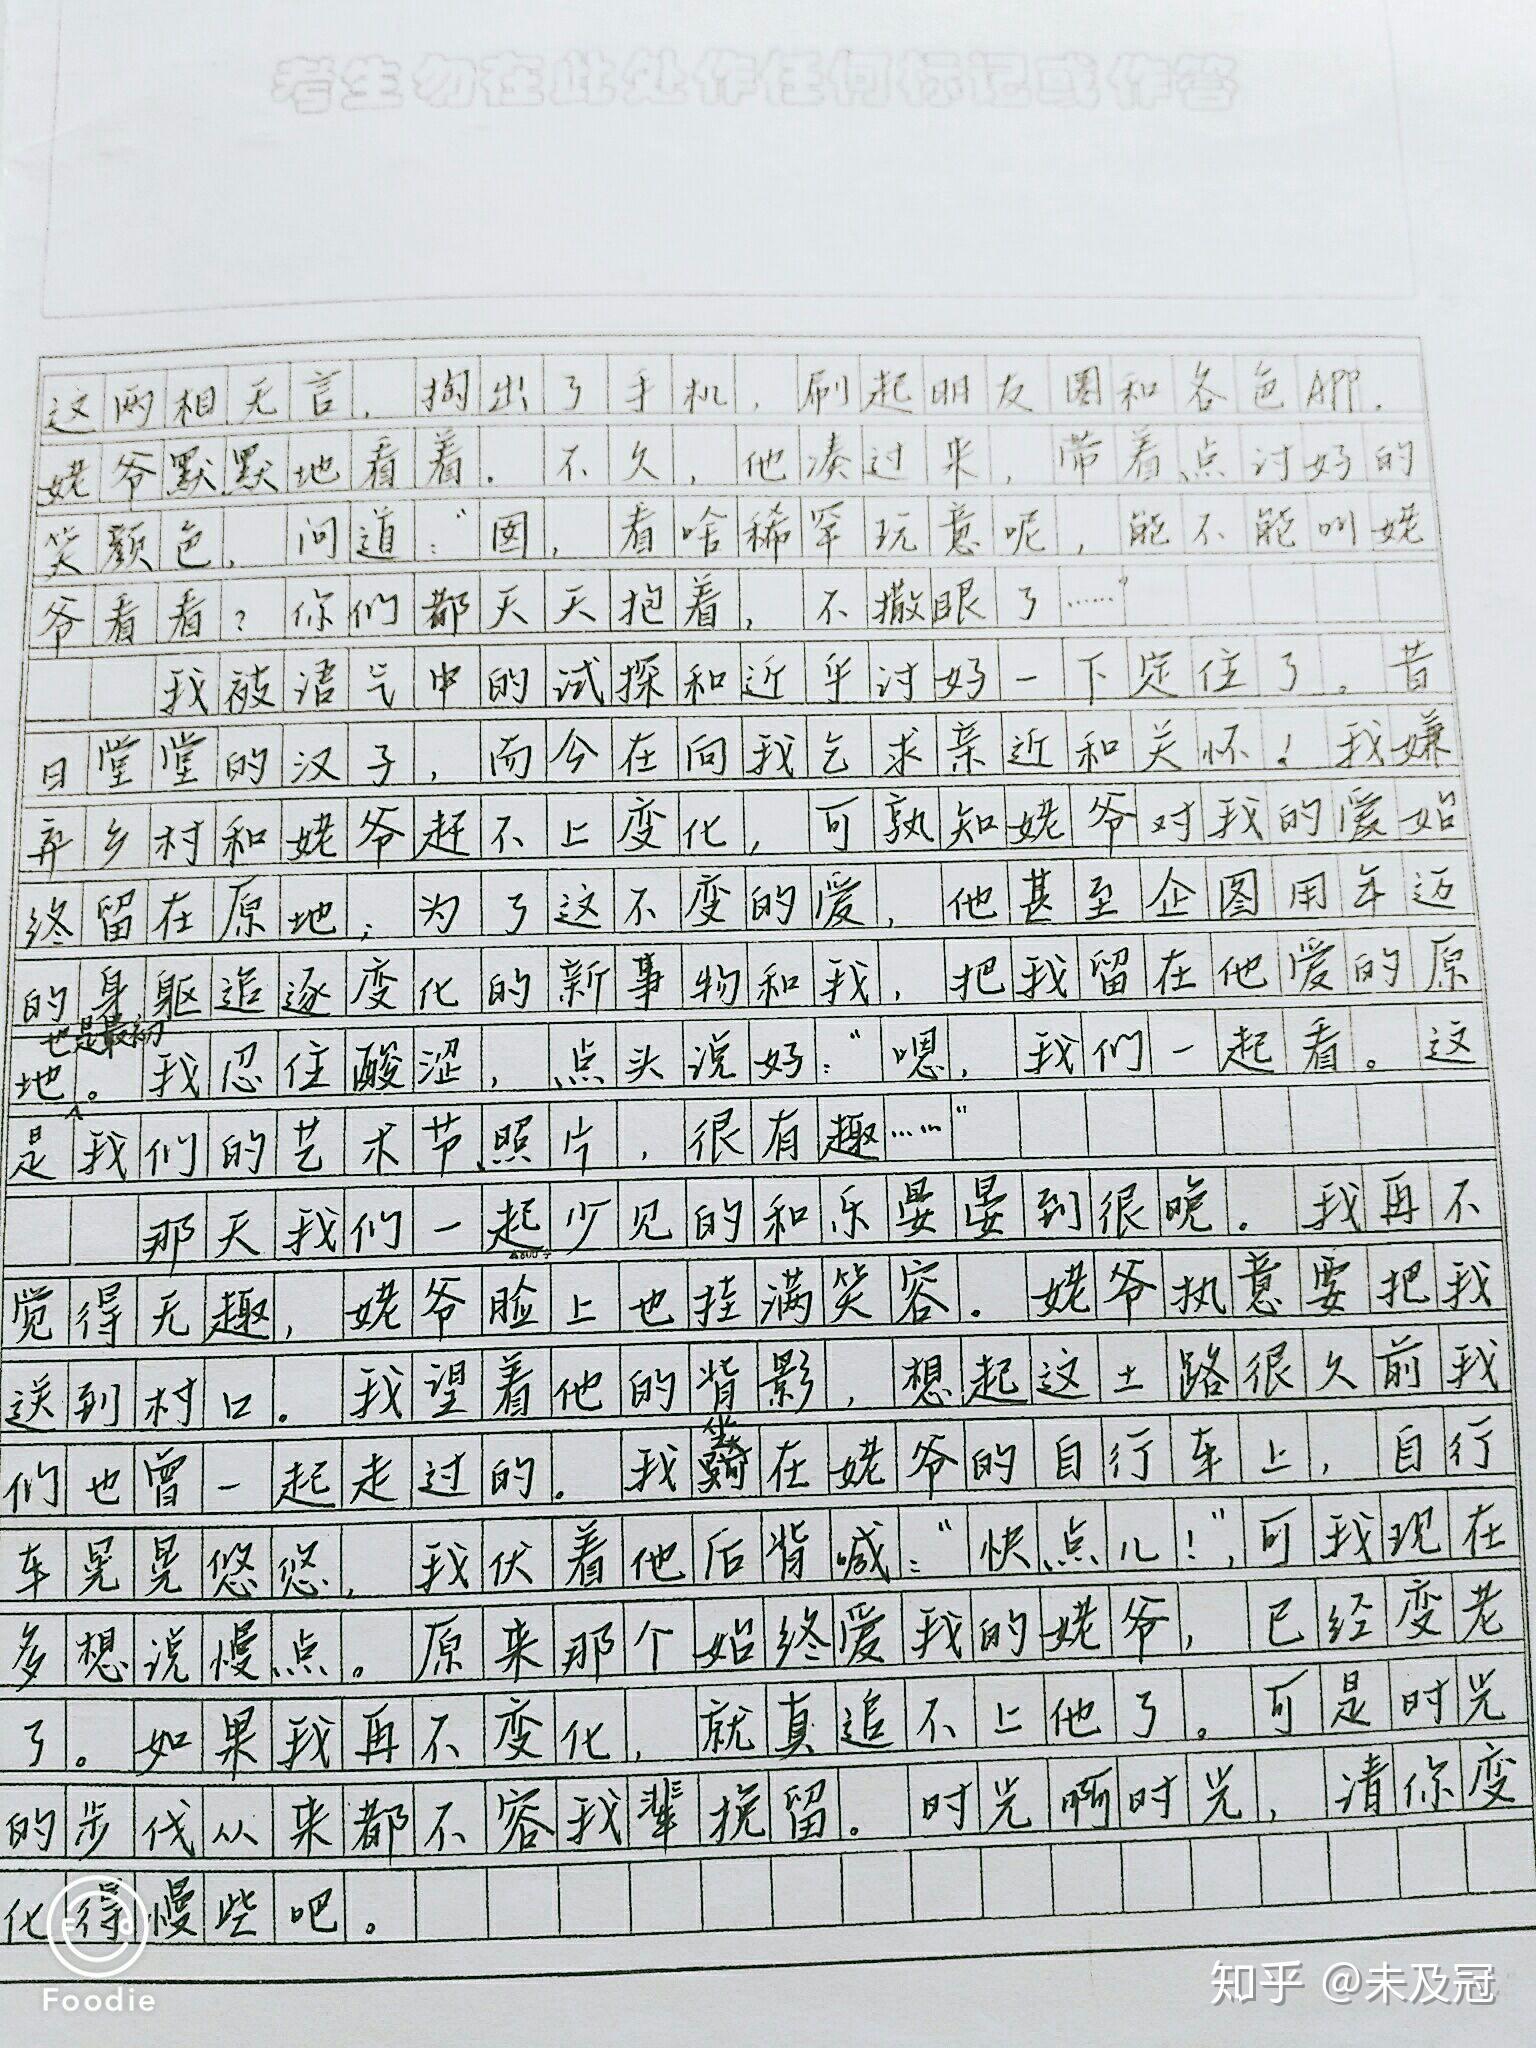 考生勿在此处作任何标记或作答
这两相无言，掏出了手机，刷起朋友圈和各色APP．
姥爷默默地看着．不久，他凑过来，带着点讨好的
笑颜色，问道：“囡，看啥稀罕玩意呢，能不能叫姥
爷看看？你们都天天抱着，不撒眼了……”
我被语气中的试探和近乎讨好一下定住了。昔
日堂堂的汉子，而今在向我乞求亲近和关怀！我嫌
弃乡村和姥爷赶不上变化，可孰知姥爷对我的爱始
终留在原地；为了这不变的爱，他甚至企图用年迈
的身躯追逐变化的新事物和我，把我留在他爱的原
也是最初
地。我忍住酸涩，点头说好：“嗯，我们一起看。这
是我们的艺术节照片，很有趣……”
那天我们一起少见的和乐晏晏到很晚．我再不
▲600字
觉得无趣，姥爷脸上也挂满笑容．姥爷执意要把我
送到村口．我望着他的背影，想起这土路很久前我
们也曾一起走过的．我坐在姥爷的自行车上，自行
车晃晃悠悠，我伏着他后背喊：“快点儿！”，可我现在
多想说慢点。原来那个始终爱我的姥爷，已经变老
了。如果我再不变化，就真追不上他了。可是时光
的步伐从来都不容我辈挽留．时光啊时光，请你变
化得慢些吧。
Foodie
知乎 @未及冠